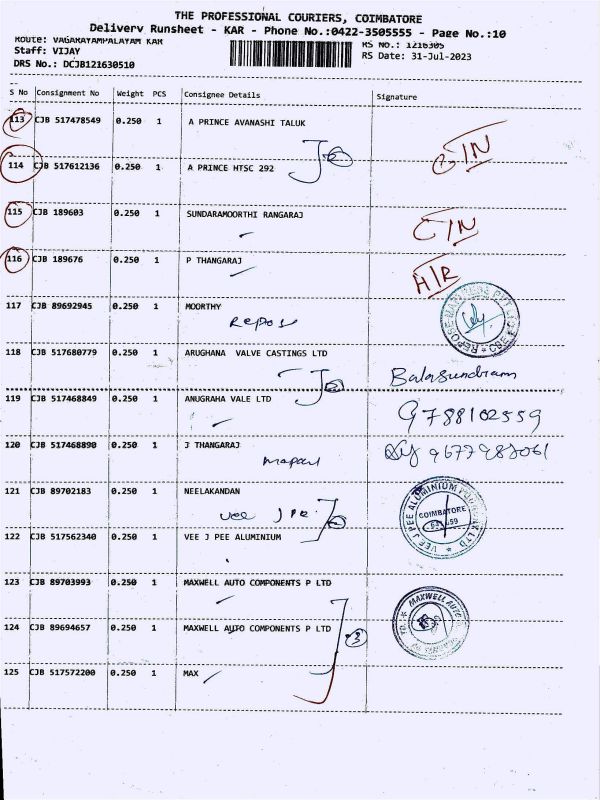 THE PROFESSIONAL COURIERS, COIMBATORE
Delivery Runsheet - KAR - Phone No.:0422-3505555 - Page No.:10
Route: VAGARAYAMPALAYAM KAR
RS No.: 1216305
Staff: VIJAY
RS Date: 31-Jul-2023
DRS No.: DCJB121630510
S No Consignment No Weight PCS Consignee Details Signature
113 CJB 517478549 0.250 1 A PRINCE AVANASHI TALUK
114 CJB 517612136 0.250 1 A PRINCE HTSC 292
115 CJB 189603 0.250 1 SUNDARAMOORTHI RANGARAJ
116 CJB 189676 0.250 1 P THANGARAJ
H/R
117 CJB 89692945 0.250 1 MOORTHY
Repos
REPOSE MATTRESS PVT LTD CBE
118 CJB 517680779 0.250 1 ARUGHANA VALVE CASTINGS LTD
Balasundram
119 CJB 517468849 0.250 1 ANUGRAHA VALE LTD
9788102559
120 CJB 517468890 0.250 1 J THANGARAJ
121 CJB 89702183 0.250 1 NEELAKANDAN
Vee J Pee
VEE J PEE ALUMINIUM
COIMBATORE
122 CJB 517562340 0.250 1 VEE J PEE ALUMINIUM
123 CJB 89703993 0.250 1 MAXWELL AUTO COMPONENTS P LTD
MAXWELL AUTO
124 CJB 89694657 0.250 1 MAXWELL AUTO COMPONENTS P LTD
3
125 CJB 517572200 0.250 1 MAX